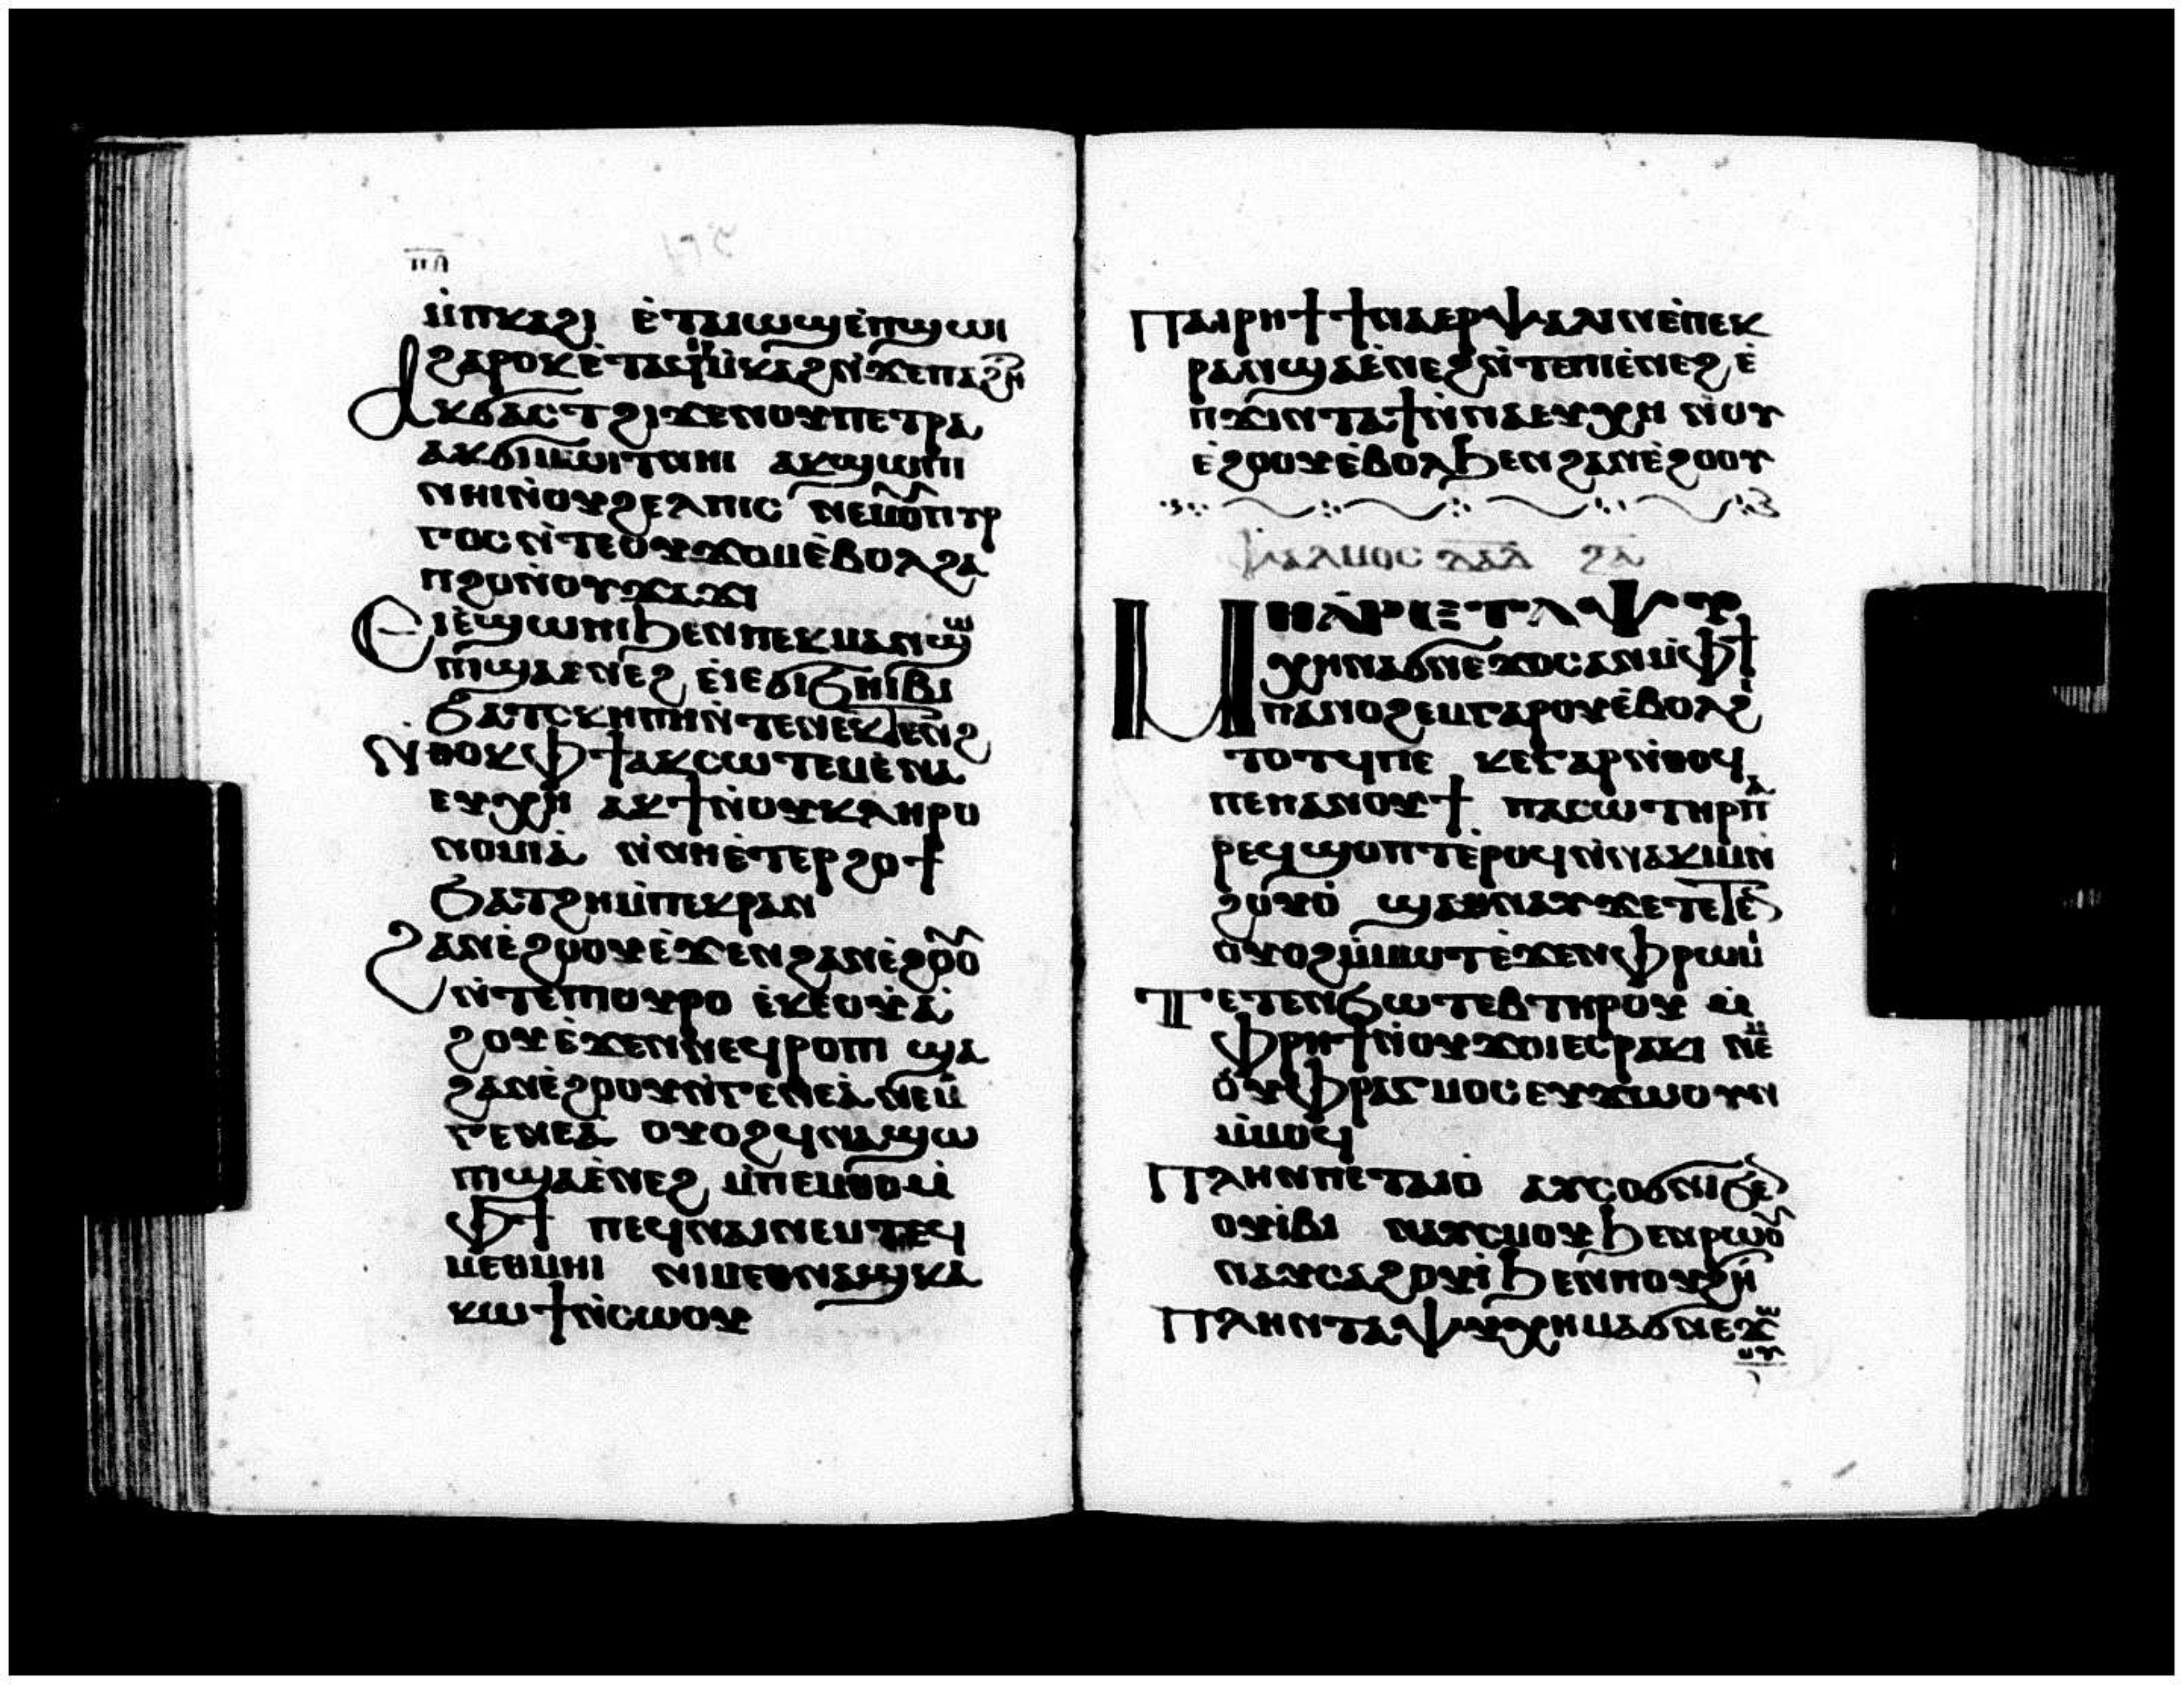 ⲙ̇ⲡⲕⲁϩⲓ ⲉ̇ⲧⲁⲓⲱϣⲉ̇ⲡϣⲱⲓ
ϩⲁⲣⲟⲕⲉ̇ⲧⲁϥⲙ̇ⲕⲁϩⲛ̇ϫⲉⲡⲁϩⲏ
ⲁⲕϭⲁⲥⲧ ϩⲓϫⲉⲛⲟⲩⲡⲉⲧⲣⲁ
ⲁⲕϭⲓⲙⲱⲓⲧⲛⲏⲓ ⲁⲕϣⲱⲡⲓ
ⲛⲏⲓⲛ̇ⲟⲩϩⲉⲗⲡⲓⲥ ⲛⲉⲙⲟⲡⲩⲣ
ⲅⲟⲥⲛ̇ⲧⲉⲟⲩϫⲟⲙⲉ̇ⲃⲟⲗϩⲁ
ⲡϩⲟⲛ̇ⲟⲩϫⲁϫⲓ
ⲉⲓⲉ̇ϣⲱⲡⲓϧⲉⲛⲡⲉⲕⲙⲁⲛϣⲱ
ⲡⲓϣⲁⲉⲛⲉϩ ⲉⲓⲉϭⲓϧⲏⲓⲃⲓ
ϧⲁⲧⲥⲕⲏⲡⲏⲛ̇ⲧⲉⲛⲉⲕⲧⲉⲛϩ
ⲛ̇ⲑⲟⲕⲫϯⲁⲕⲥⲱⲧⲉⲙⲉ̇ⲛⲁ
ⲉⲩⲭⲏ ⲁⲕϯⲛ̇ⲟⲩⲕⲗⲏⲣⲟ
ⲛⲟⲙⲓⲁ̇ ⲛ̇ⲛⲏⲉ̇ⲧⲉⲣϩⲟϯ
ϧⲁⲧϩⲏⲙ̇ⲡⲉⲕⲣⲁⲛ
ϩⲁⲛⲉ̇ϩⲟⲟⲩⲉ̇ϫⲉⲛϩⲁⲛⲉ̇ϩⲟⲟ
ⲛ̇ⲧⲉⲡⲟⲩⲣⲟ ⲉ̇ⲕⲉⲟⲩⲁ̇
ϩⲟⲩⲉ̇ϫⲉⲛⲛⲉϥⲣⲟⲙⲡⲓ ϣⲁ
ϩⲁⲛⲉ̇ϩⲟⲟⲩⲛ̇ⲅⲉⲛⲉⲁ̇ⲛⲉⲙ
ⲅⲉⲛⲉⲁ̇ ⲟⲩⲟϩϥⲛⲁϣⲱ
ⲡⲓϣⲁⲉ̇ⲛⲉϩ ⲙ̇ⲡⲉⲙⲑⲟⲙ̇
ⲫϯ ⲡⲉϥⲛⲁⲓⲛⲉⲙⲧⲉϥ
ⲙⲉⲑⲙⲏⲓ ⲛⲓⲙⲉⲑⲛⲁϣⲕⲁ
ⲕⲱϯⲛ̇ⲥⲱⲟⲩ
ⲡⲁⲓⲣⲏϯ ϯⲛⲁⲉⲣⲯⲁⲗⲓⲛⲉ̇ⲡⲉⲕ
ⲣⲁⲛϣⲁⲉ̇ⲛⲉϩⲛ̇ⲧⲉⲡⲓⲉ̇ⲛⲉϩ ⲉ̇
ⲡϫⲓⲛⲧⲁϯⲛ̇ⲛⲁⲉⲩⲭⲏ ⲛ̇ⲟⲩ
ⲉ̇ϩⲟⲟⲩⲉ̇ⲃⲟⲗϧⲉⲛϩⲁⲛⲉ̇ϩⲟⲟⲩ
ⲯⲁⲗⲙⲟⲥ ⲇⲁⲇ ⲝⲁ
ⲙⲏⲁ̇ⲣⲉⲧⲁⲯⲩ
ⲭⲏⲛⲁϭⲛⲉϫⲟⲥⲁⲛⲙ̇ⲫϯ
ⲡⲁⲛⲟϩⲉⲙⲅⲁⲣⲟⲩⲉ̇ⲃⲟⲗϩⲓ
ⲧⲟⲧϥⲡⲉ ⲕⲉⲅⲁⲣⲛ̇ⲑⲟϥ
ⲡⲉⲡⲁⲛⲟⲩϯ ⲡⲁⲥⲱⲧⲏⲣⲡⲁ
ⲣⲉϥϣⲟⲡⲧⲉ̇ⲣⲟϥⲛ̇ⲛⲁⲕⲓⲙⲛ̇
ϩⲟⲩⲟ̇ ϣⲁⲑⲛⲁⲩϫⲉⲧⲉⲧⲉ
ⲟⲩⲟϩⲙ̇ⲙⲱⲧⲉ̇ϫⲉⲛⲫⲣⲱⲙⲓ
ⲧⲉⲧⲉⲛϧⲱⲧⲉⲃⲧⲏⲣⲟⲩ ⲙ̇
ⲫⲣⲏϯⲛ̇ⲟⲩϫⲟⲓⲉⲥⲣⲁⲕⲓ ⲛⲉⲙ
ⲟⲩⲫⲣⲁⲅⲙⲟⲥⲉⲩϫⲱⲟⲩⲛ
ⲙ̇ⲙⲟϥ
ⲡⲗⲏⲛⲡⲉⲧⲁⲓⲟ̇ ⲁⲩⲥⲟϭⲛⲓϩⲉ
ⲟⲩⲓ̇ⲃⲓ ⲛⲁⲩⲥⲙⲟⲩϧⲉⲛⲣⲱⲟ
ⲛⲁⲩⲥⲁϩⲟⲩⲓ̇ϧⲉⲛⲡⲟⲩϩⲏ
ⲡⲗⲏⲛⲧⲁⲯⲩⲭⲏⲙⲁϭⲛⲉϫⲱ